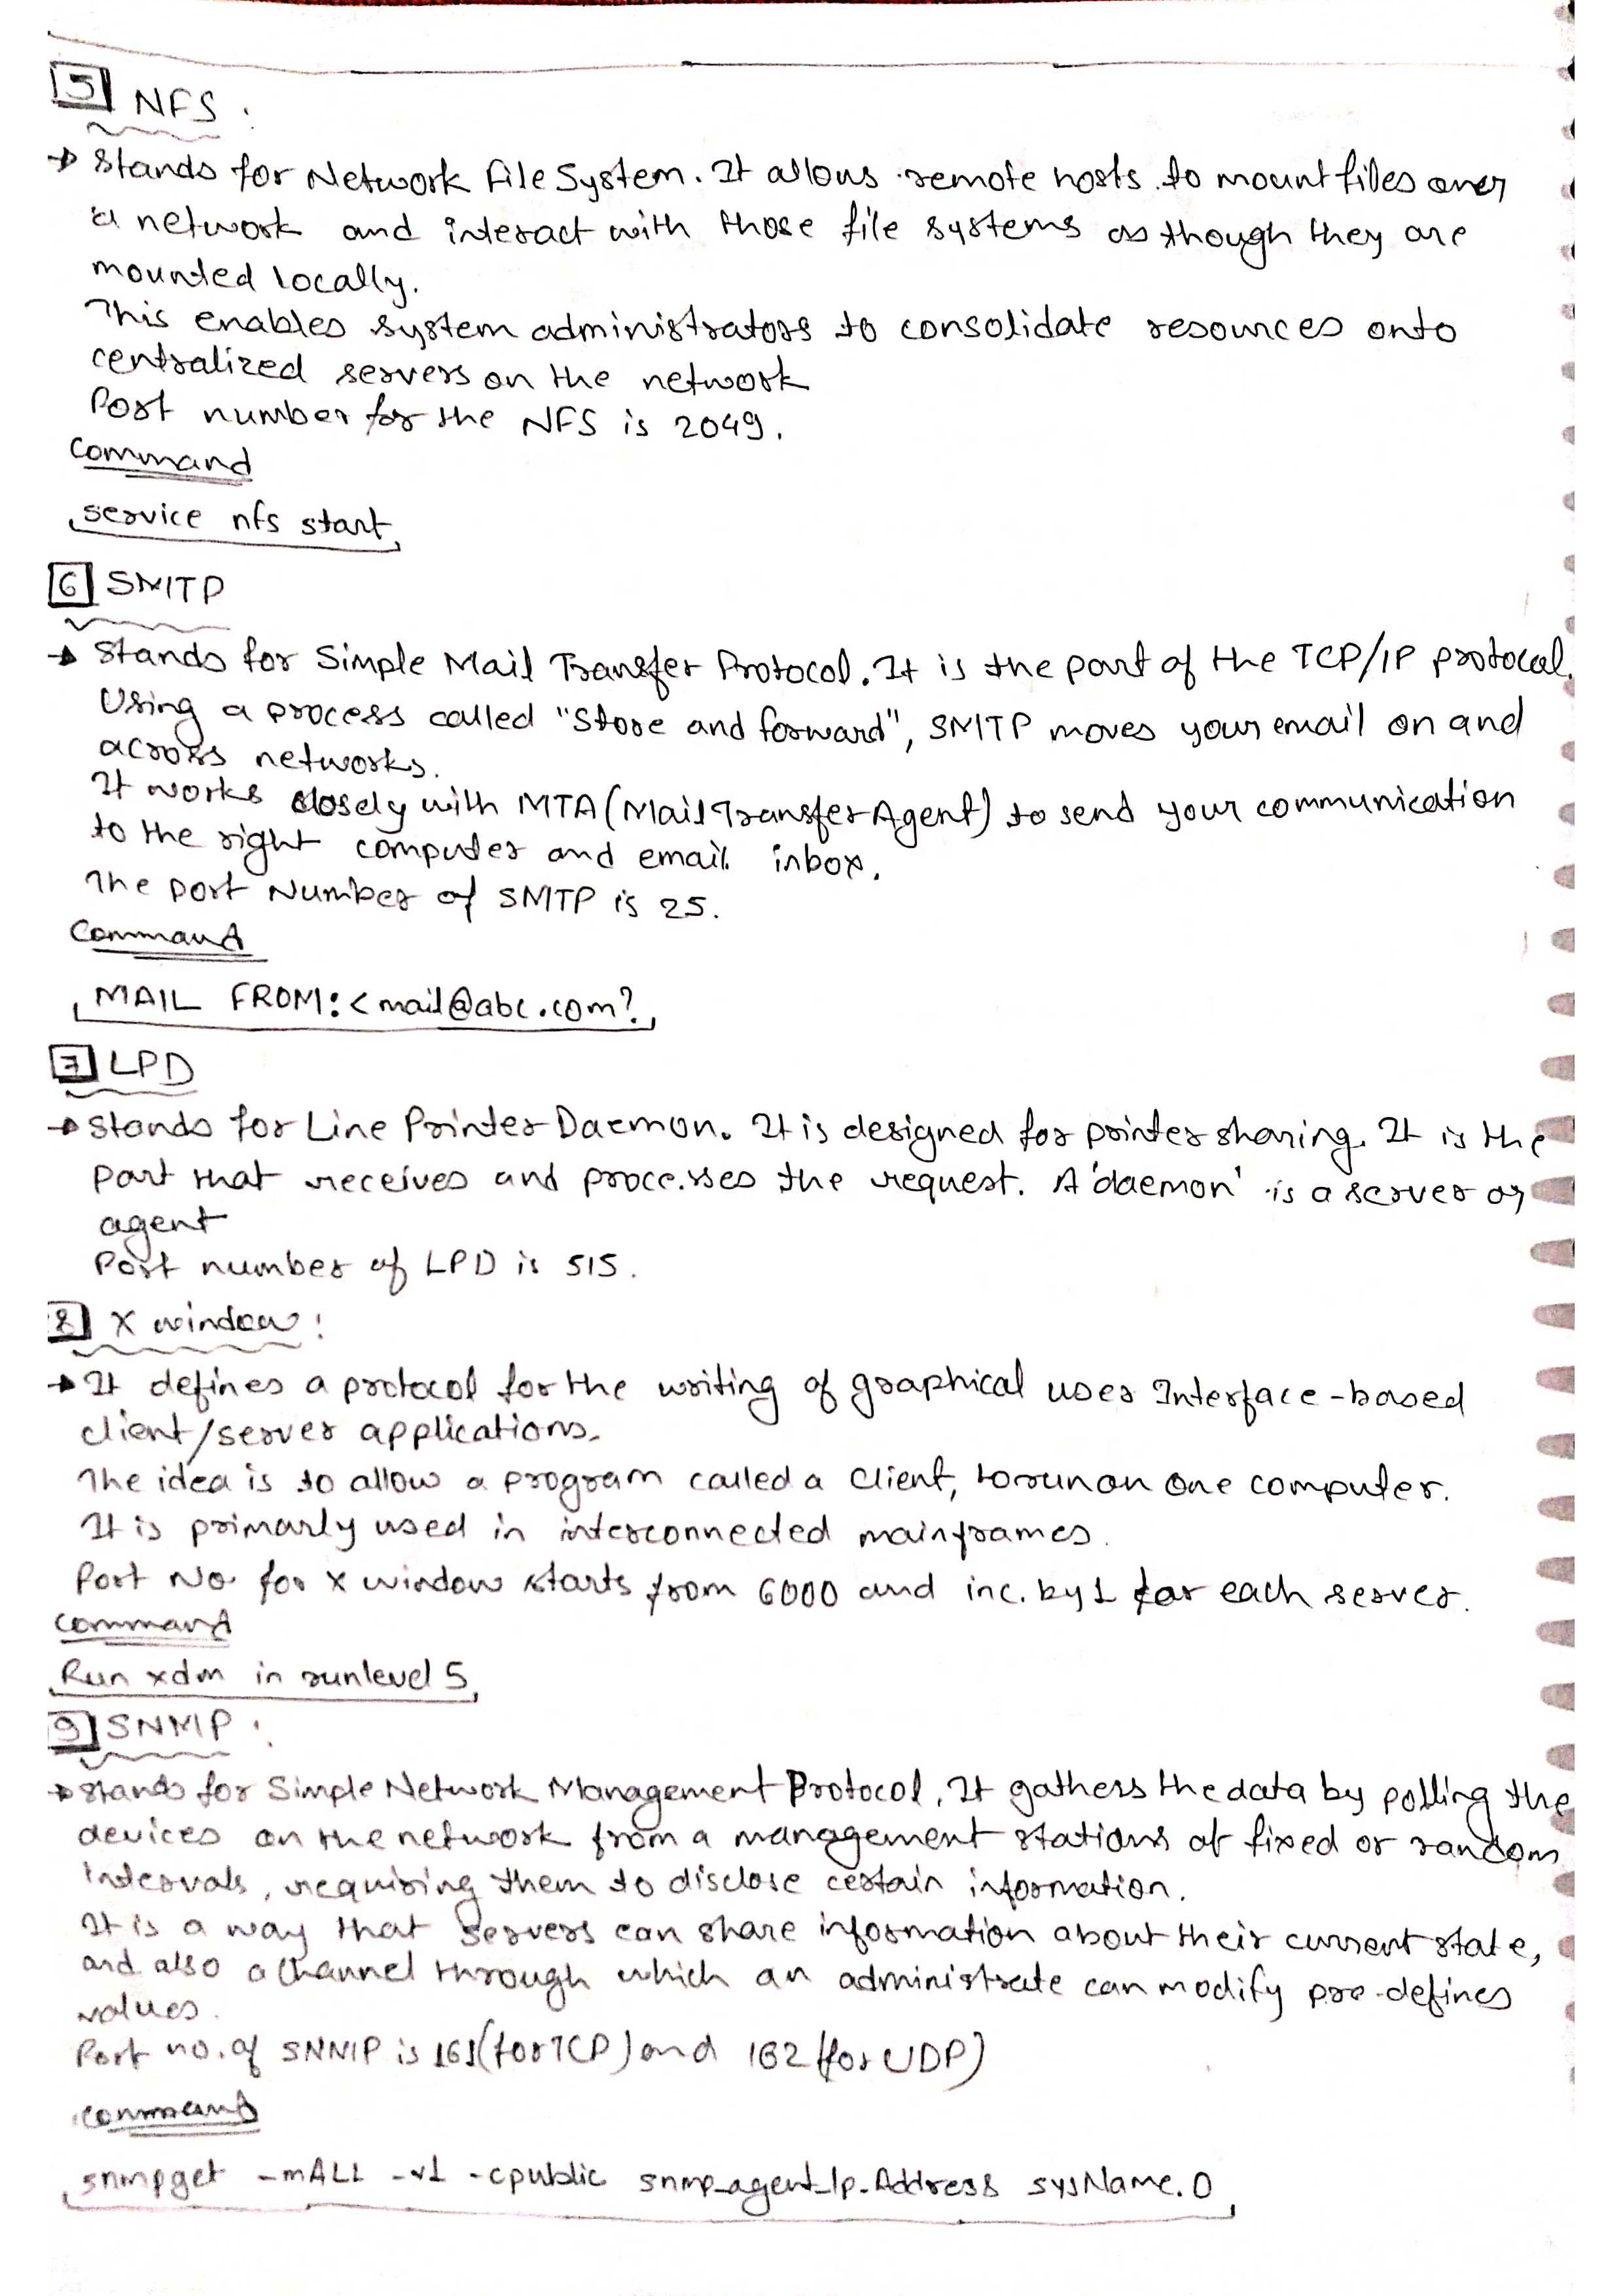 5 NFS :
→ Stands for Network File System. It allows remote hosts to mount files over
a network and interact with those file systems as though they are
mounted locally.
This enables system administrators to consolidate resources onto
centralized servers on the network
Port number for the NFS is 2049.
Command
service nfs start
6 SMTP
→ Stands for Simple Mail Transfer Protocol. It is the part of the TCP/IP protocol.
Using a process called "Store and forward", SMTP moves your email on and
across networks.
It works closely with MTA (Mail Transfer Agent) to send your communication
to the right computer and email inbox.
The port Number of SMTP is 25.
Command
MAIL FROM:<mail@abc.com?
7 LPD
→ Stands for Line Printer Daemon. It is designed for printer sharing. It is the
part that receives and processes the request. A 'daemon' is a server or
agent
Port number of LPD is 515.
8 X window :
→ It defines a protocol for the writing of graphical user Interface-based
client/server applications.
The idea is to allow a program called a client, to run on one computer.
It is primarly used in interconnected mainframes.
Port No. for X window starts from 6000 and inc. by 1 for each server.
Command
Run xdm in runlevel 5
9 SNMP :
→ Stands for Simple Network Management Protocol. It gathers the data by polling the
devices on the network from a management stations at fixed or random
intervals, requiring them to disclose certain information.
It is a way that servers can share information about their current state,
and also a channel through which an administrate can modify pre-defines
values.
Port no. of SNMP is 161 (for TCP) and 162 (for UDP)
command
snmpget -mALL -v1 -cpublic snmp_agent_Ip_Address sysName.0